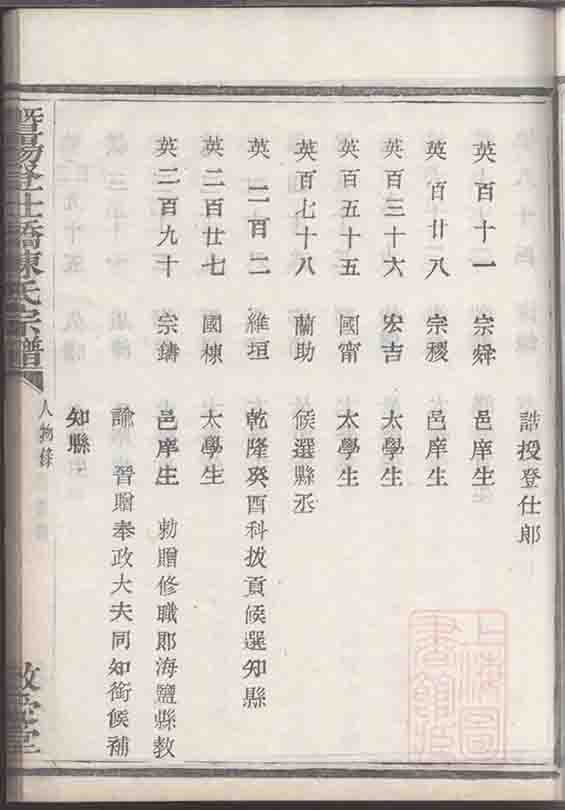 誥授登仕郞
英百十一 宗舜 邑庠生
英百廿八 宗稷 邑庠生
英百三十六 宏吉 太學生
英百五十五 國甯 太學生
英百七十八 蘭助 候選縣丞
英二百二 維垣 乾隆癸酉科拔貢候選知縣
英二百廿七 國棟 太學生
英二百九十 宗鑄 邑庠生 勅贈修職郞海鹽縣教
諭 晉贈奉政大夫同知銜候補
知縣
暨陽登仕橋陳氏宗譜
人物錄
敦堂
上海圖書館